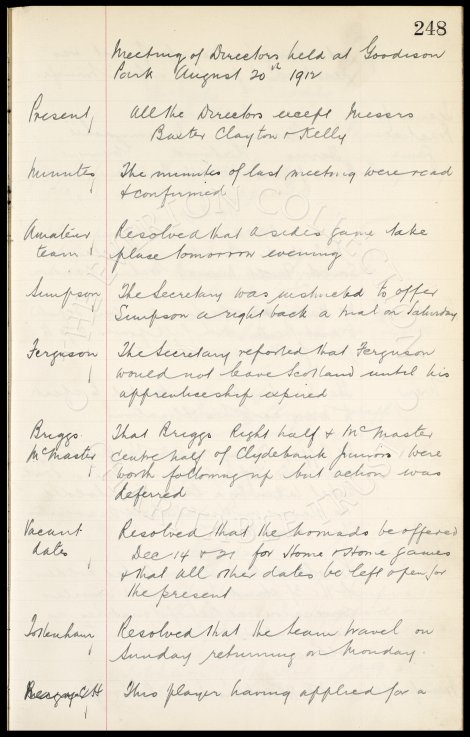 248
Meeting of Directors held at Goodison
Park August 20th 1912
Present, All the Directors except Messrs
Baxter Clayton & Kelly
Minutes, The minutes of last meeting were read
& confirmed
Amateur Resolved that a sides game take
team, place tomorrow evening
Simpson, The Secretary was instructed to offer
Simpson a right back a trial on Saturday
Ferguson, The Secretary reported that Ferguson
would not leave Scotland until his
apprenticeship expired
Briggs That Briggs Right half & McMaster
McMaster, centre half of Clydebank Juniors were
worth following up but action was
deferred
Vacant Resolved that the Nomads be offered
dates, Dec 14 & 21 for Home & Home games
& that all other dates be left open for
the present
Tottenham, Resolved that the team travel on
Sunday returning on Monday.
This player having applied for a
EVERTON COLLECTION
CHARITABLE TRUST